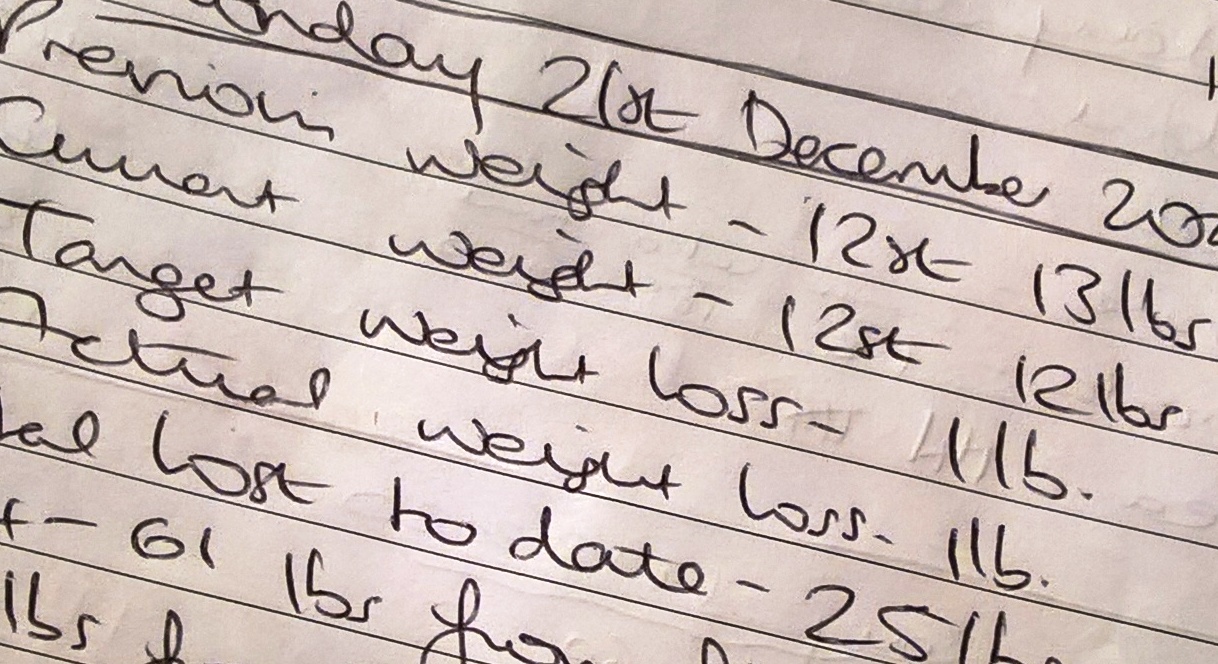 21st December
Previous weight - 12st 13lbs
Current weight - 12st 12lbs
Target weight loss - 1lb.
Actual weight loss - 1lb.
lost to date - 25lb
- 61 lbs from
lbs